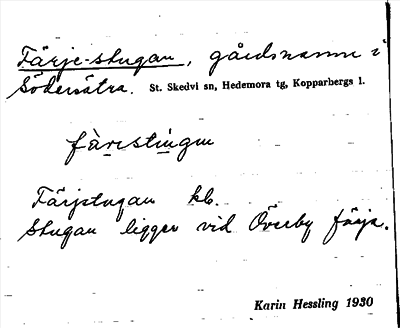 Färje-stugan, gårdsnamn i
Södersätra. St. Skedvi sn, Hedemora tg, Kopparbergs l.
fàrestùgun
Färjstugan kb.
Stugan ligger vid Överby färja.
Karin Hessling 1930